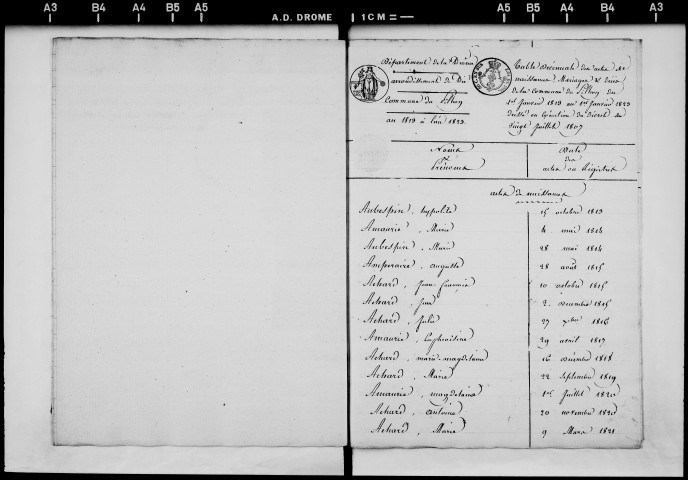 A3 B4 A4 B5 A5 A.D. DROME 1 CM = A5 B5 A4 B4 A3
Département de la Drôme
arrondissement de Die
Commune du Pilhon
an 1813 à l'an 1823.
Table Décennale des actes de
naissances, Mariages & Décès
de la Commune du Pilhon du
1er Janvier 1813 au 1er Janvier 1823
en Exécution du Décret du
Vingt Juillet 1807
Noms
et
Prénoms
Date
des
actes ou Registres
actes de naissances
Aubespin, hyppolite 15 octobre 1813
Amaurie, Marie 4 mai 1814
Aubespin, Marie 28 mai 1814
Amperaire, auguste 28 août 1815
Achard, Jean francois 10 octobre 1815
Achard, Jean 2 Décembre 1815
Achard, Julie 27 1816
Amaurie, Euphrosine 29 avril 1817
Achard, marie magdelaine 16 Décembre 1818
Achard, Marie 22 Septembre 1819
Amaurie, magdelaine 1er Juillet 1820
Achard, antoine 20 novembre 1820
Achard, Marie 9 Mars 1821